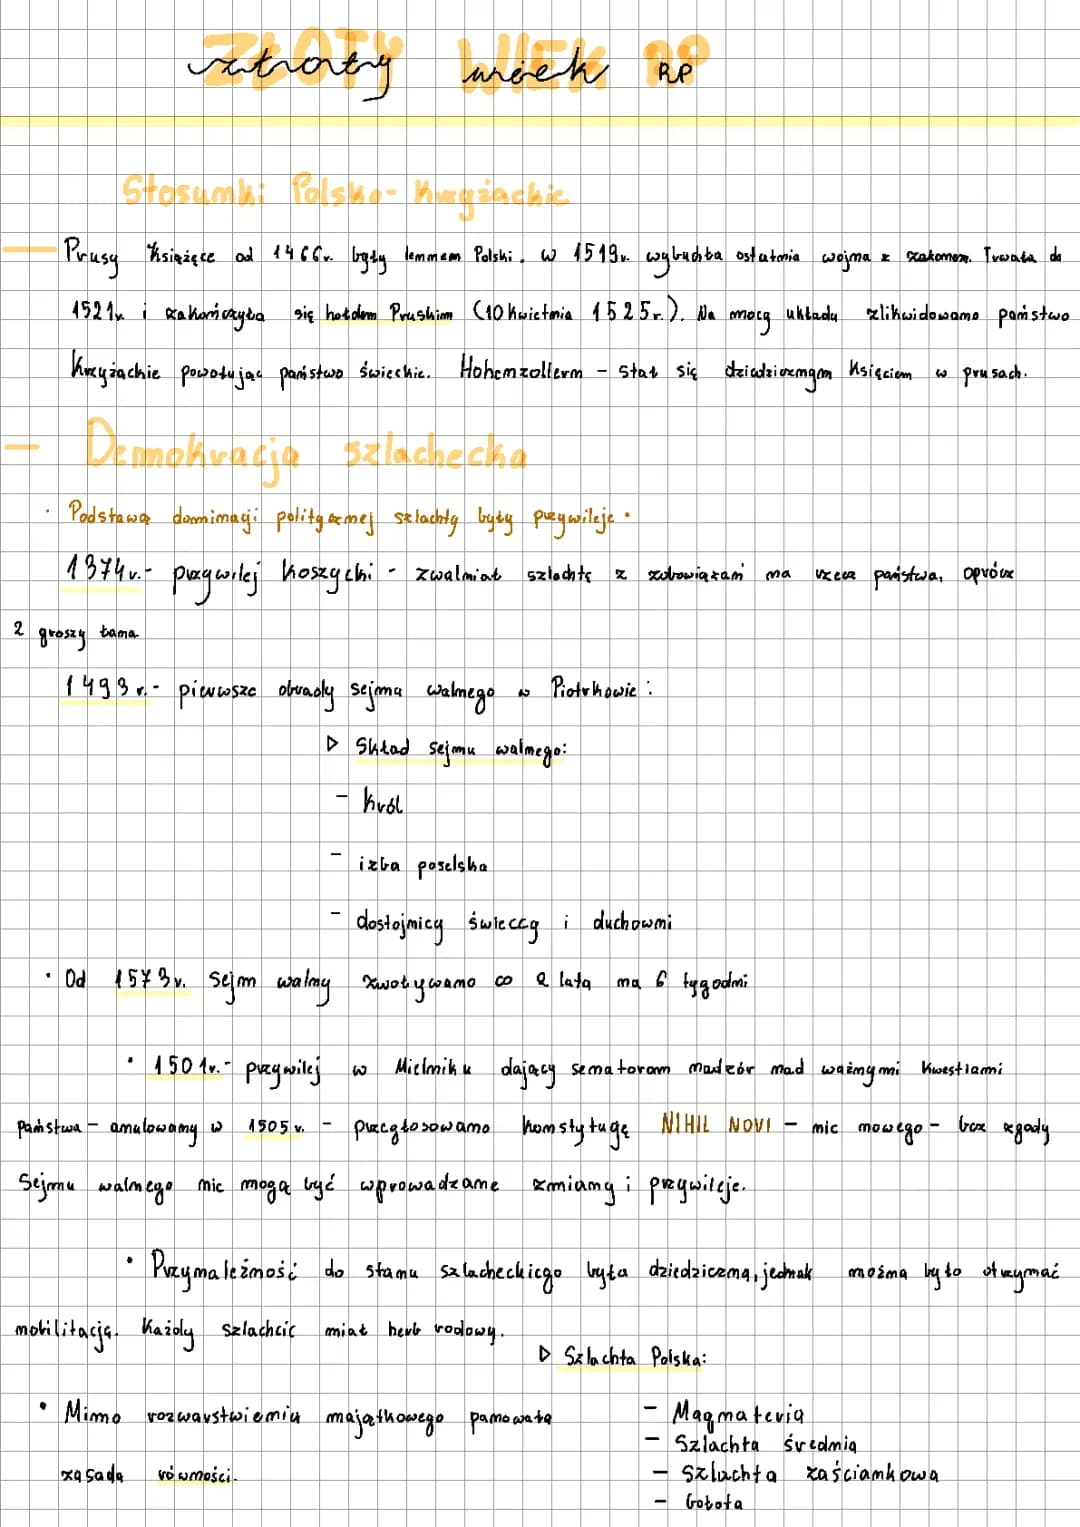 ZŁOTY WIEK RP
złoty wiek RP
Stosunki Polsko-Krzyżackie
— Prusy Książęce od 1466r. były lennem Polski. w 1519r. wybuchła ostatnia wojna z zakonem. Trwała do
1521r. i zakończyła się hołdem Pruskim (10 kwietnia 1525r.). Na mocy układu zlikwidowano państwo
Krzyżackie powołując państwo świeckie. Hohenzollern - stał się dziedzicznym Księciem w prusach.
— Demokracja szlachecka
· Podstawą dominacji politycznej szlachty były przywileje.
1374r.- przywilej koszycki - zwalniał szlachtę z zobowiązań na rzecz państwa, oprócz
2 groszy łana
1493r.- pierwsze obrady sejmu walnego w Piotrkowie:
▷ Skład sejmu walnego:
- król
- izba poselska
- dostojnicy świeccy i duchowni
· Od 1573r. Sejm walny zwoływano co 2 lata na 6 tygodni
· 1501r.- przywilej w Mielniku dający senatorom nadzór nad ważnymi kwestiami
Państwa - anulowany w 1505r. - przegłosowano konstytucję NIHIL NOVI - nic nowego - bez zgody
Sejmu walnego nic mogą być wprowadzane zmiany i przywileje.
· Przynależność do stanu szlacheckiego była dziedziczna, jednak można było otrzymać
nobilitację. Każdy szlachcic miał herb rodowy.
▷ Szlachta Polska:
· Mimo rozwarstwienia majątkowego panowała
zasada równości.
- Magnateria
- Szlachta średnia
- Szlachta zaściankowa
- Gołota